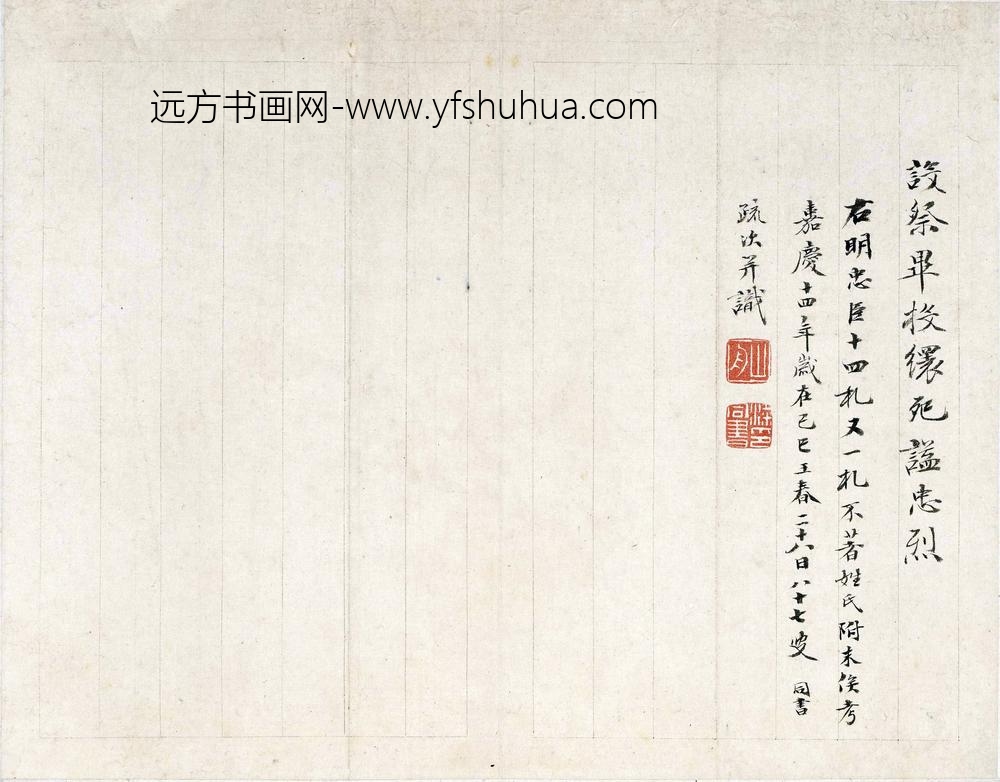 远方书画网-www.yfshuhua.com
設祭畢投繯死謚忠烈
右明忠臣十四札又一札不著姓氏附末俟考
嘉慶十四年歲在己巳王春二十八日八十七叟 同書
疏次并識
山舟
梁同書印